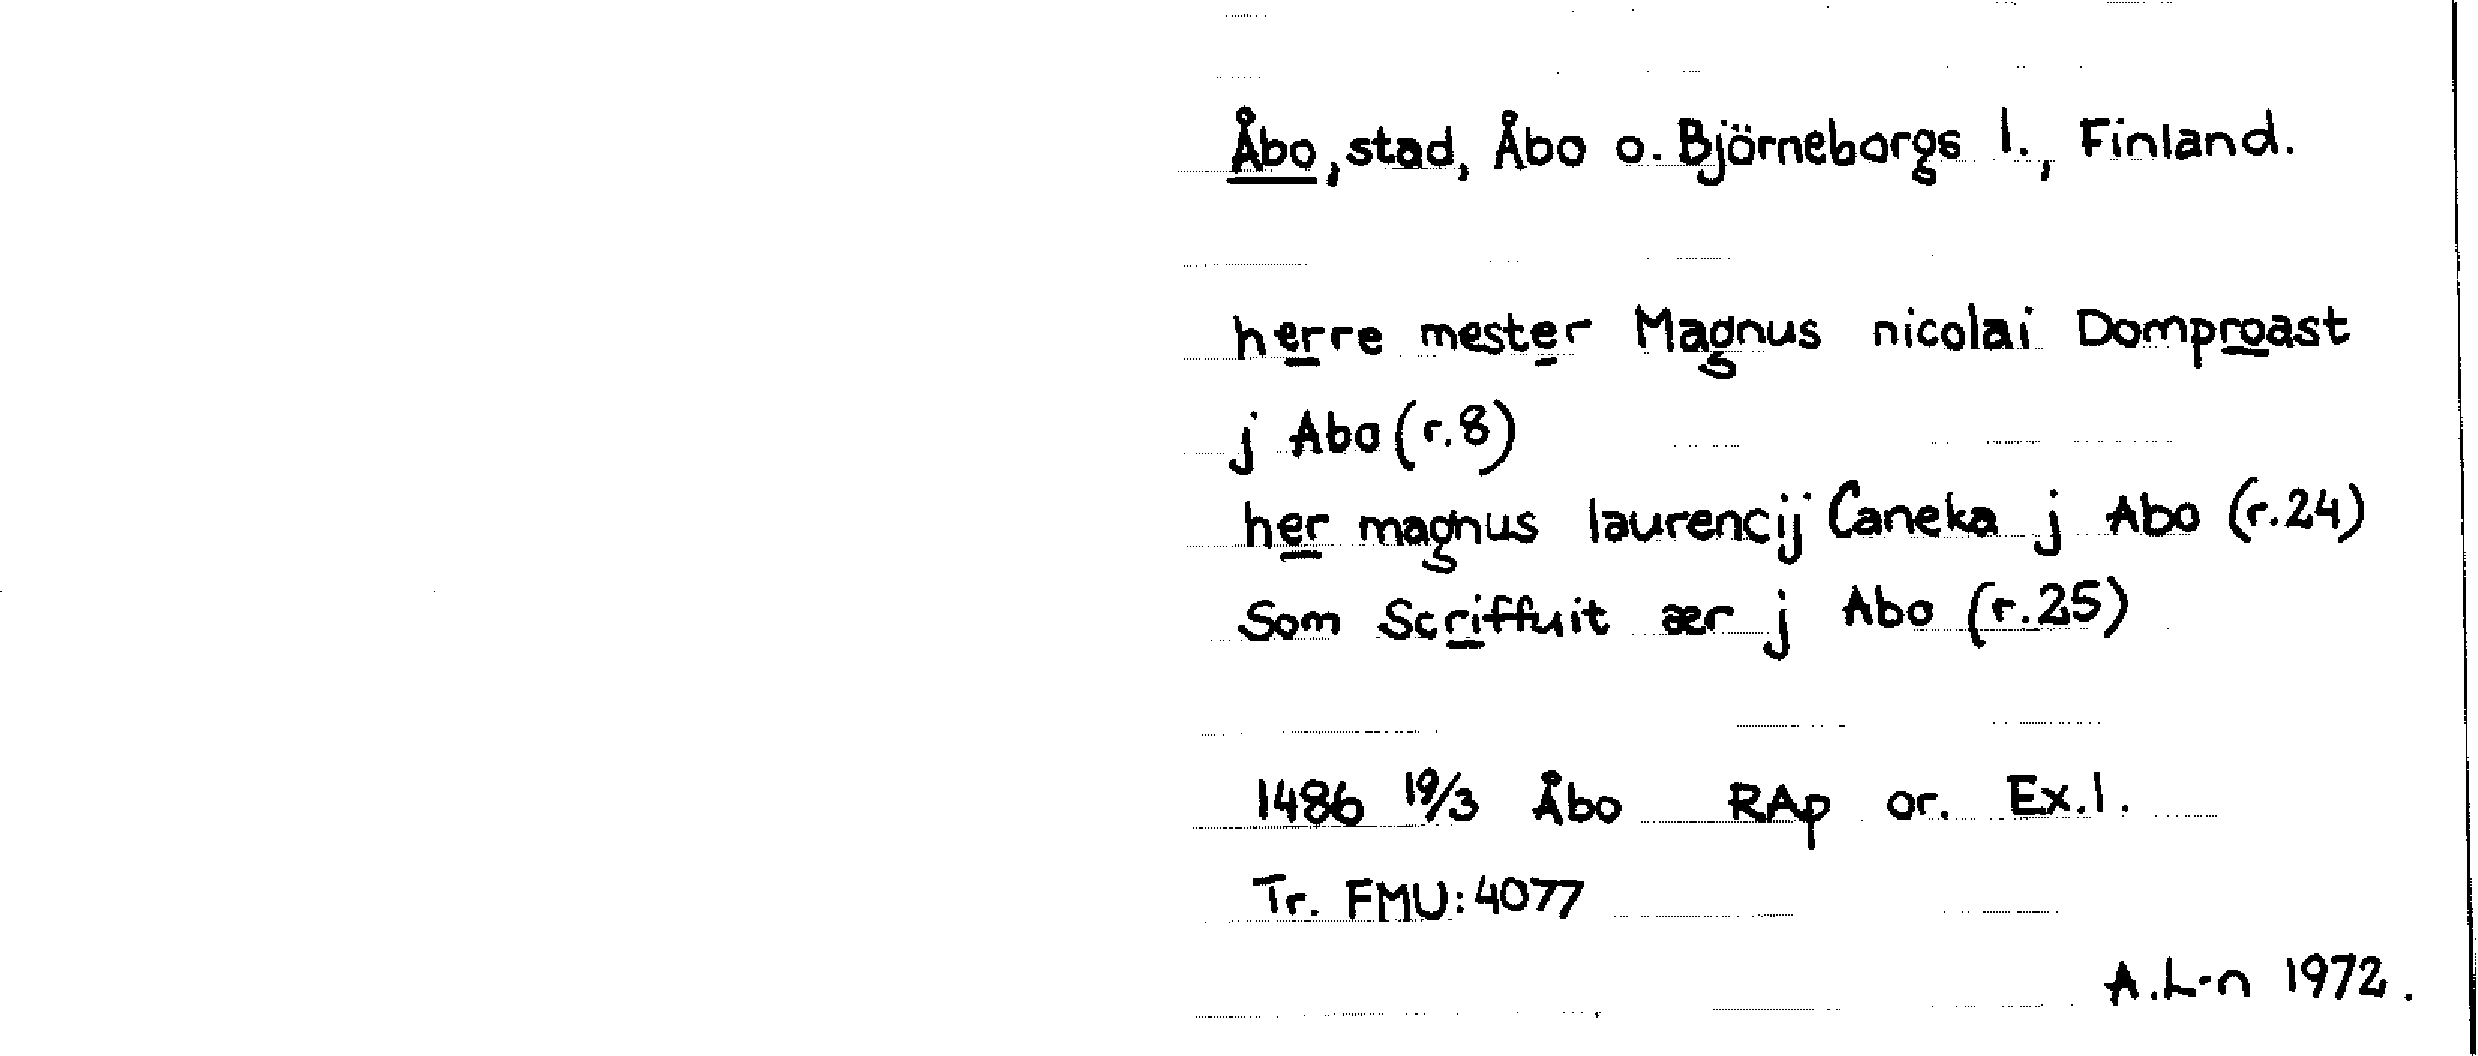 Åbo, stad, Åbo o. Björneborgs l., Finland.
herre mester Magnus nicolai Domproast
j Abo (r.8)
her magnus laurencij Caneka j Abo (r.24)
Som Scriffuit ær j Abo (r.25)
1486 19/3 Åbo RAp or. Ex.1.
Tr. FMU: 4077
A.L-n 1972.